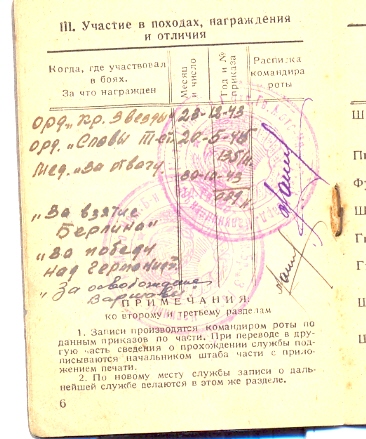 III. Участие в походах, награждения
и отличия
Когда, где участвовал
в боях.
За что награжден
Месяц
и число
Год и №
приказа
Расписка
командира
роты
Орд. „Кр. Звезды" 23-12-43
Орд. „Славы 20-5-45
Мед. „За отвагу 30-10-43
„За взятие
Берлина"
„За победу
над Германией.
„За освобождение
Варшавы
ПРИМЕЧАНИЯ:
ко второму и третьему разделам
1. Записи производятся командиром роты по
данным приказов по части. При переводе в дру-
гую часть сведения о прохождении службы под-
писываются начальником штаба части с прило-
жением печати.
2. По новому месту службы записи о даль-
нейшей службе делаются в этом же разделе.
6